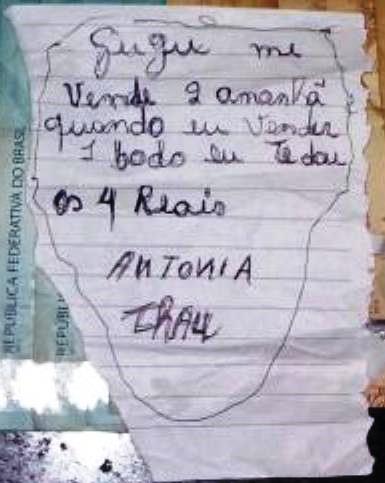 Gugu me
Vende 2 amanhã
quando eu Vender
1 bodo eu Te dou
os 4 Reais
ANTONIA
IRAN
REPUBLICA FEDERATIVA DO BRASIL
REPUBLI